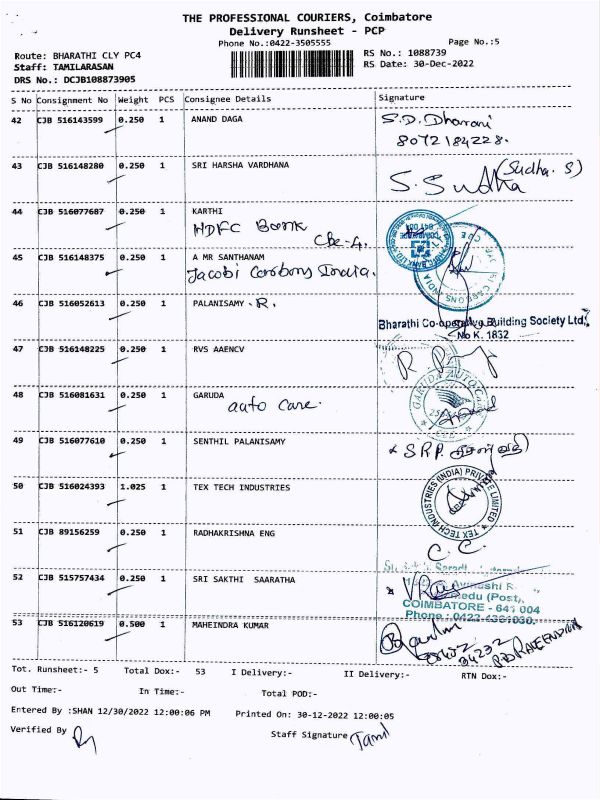 THE PROFESSIONAL COURIERS, Coimbatore
Delivery Runsheet - PCP
Phone No.:0422-3505555
Page No.:5
Route: BHARATHI CLY PC4
RS No.: 1088739
Staff: TAMILARASAN
RS Date: 30-Dec-2022
DRS No.: DCJB108873905
S No Consignment No Weight PCS Consignee Details Signature
42 CJB 516143599 0.250 1 ANAND DAGA S.D. Dharani
8072184228.
43 CJB 516148280 0.250 1 SRI HARSHA VARDHANA (Sudha. S)
S. Sudha
44 CJB 516077687 0.250 1 KARTHI
HDFC Bank
Cbe-4.
45 CJB 516148375 0.250 1 A MR SANTHANAM
Jacobi Carbons India.
46 CJB 516052613 0.250 1 PALANISAMY . R.
Bharathi Co-operative Building Society Ltd.,
No K. 1832
47 CJB 516148225 0.250 1 RVS AAENCV
48 CJB 516081631 0.250 1 GARUDA
auto care.
GARUDA AUTO CARE
49 CJB 516077610 0.250 1 SENTHIL PALANISAMY S.R.P.
50 CJB 516024393 1.025 1 TEX TECH INDUSTRIES
TEX TECH INDUSTRIES (INDIA) PRIVATE LIMITED
51 CJB 89156259 0.250 1 RADHAKRISHNA ENG C. C.
52 CJB 515757434 0.250 1 SRI SAKTHI SAARATHA
COIMBATORE - 641 004
53 CJB 516120619 0.500 1 MAHEINDRA KUMAR
Tot. Runsheet:- 5 Total Dox:- 53 I Delivery:- II Delivery:- RTN Dox:-
Out Time:- In Time:- Total POD:-
Entered By :SHAN 12/30/2022 12:00:06 PM Printed On: 30-12-2022 12:00:05
Verified By Staff Signature Tamil